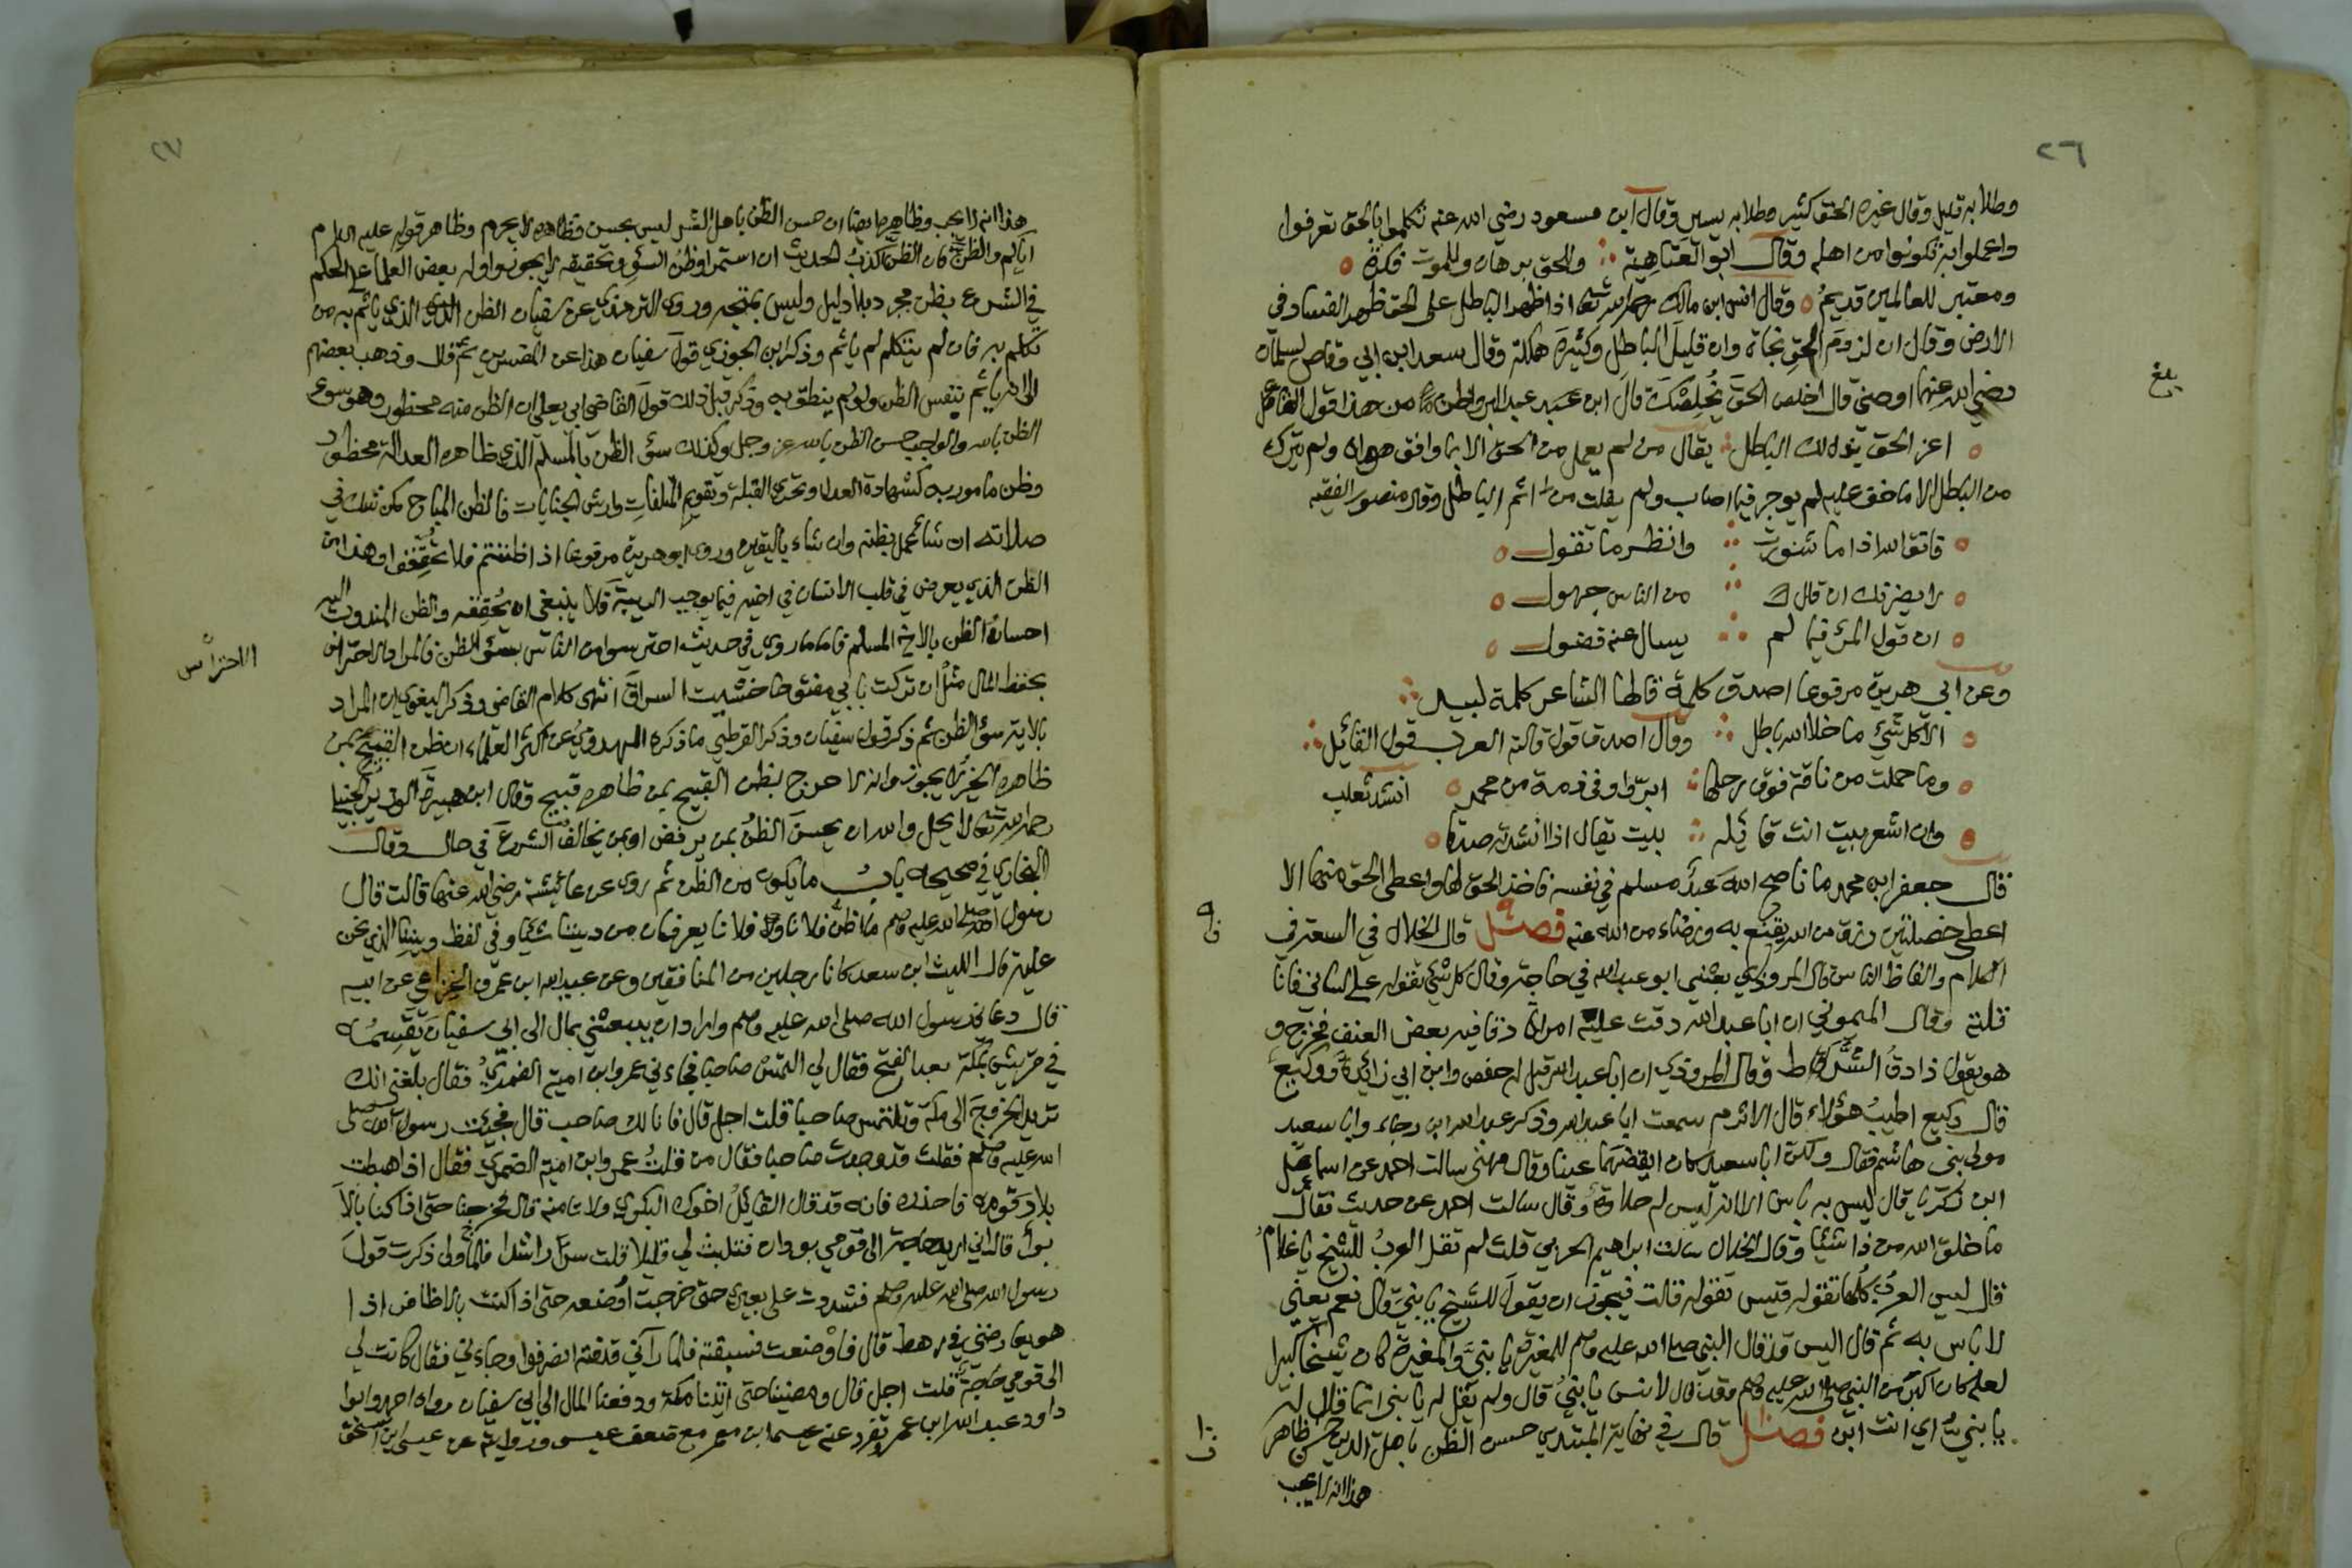 ٢٦
وطلابه قليل وقال غيره الحق كثير وطلابه يسير وقال ابن مسعود رضي الله عنه تكلموا بالحق تعرفوا
واعملوا به تكونوا من اهله وقال ابو العتاهية وللحق برهان وللموت فكرة
ومعتبر للعالمين قديم وقال انس ابن مالك رحمه الله تعالى اذا ظهر الباطل على الحق ظهر الفساد في
الارض وقال ان لزوم الحق نجاة وان قليل الباطل وكثيره هلكة وقال سعد ابن ابي وقاص لسلمان
رضي الله عنهما اوصني قال اخلص الحق يخلصك قال ابن عبد البر واظن من هذا قول القائل
بلغ
اعز الحق يذل لك الباطل يقال من لم يعمل من الحق الا بما وافق هواه ولم يترك
من الباطل الا ما خف عليه لم يوجر فيما اصاب ولم يفلت من اثم الباطل وقال منصور الفقيه
فاتق الله اذا ما شورت وانظر ما تقول
لا يضرنك ان قال من الناس جهول
ان قول المرء فيما لم يسال عنه فضول
وعن ابي هريرة مرفوعا اصدق كلمة قالها الشاعر كلمة لبيد
الا كل شيء ما خلا الله باطل وقال اصدق قول قالته العرب قول القائل
وما حملت من ناقة فوق رحلها ابر واوفى ذمة من محمد انشد ثعلب
وان اشعر بيت انت قائله بيت يقال اذا انشدته صدقا
قال جعفر ابن محمد ما ناصح الله عبد مسلم في نفسه فاخذ الحق لها واعطى الحق منها الا
اعطي خصلتين رزق من الله يقنع به ورضاء من الله عنه فصل قال الخلال في السعتر في
الكلام والفاظ الناس قال المروذي بعثني ابو عبد الله في حاجة وقال كل شيء تقوله على لساني فانا
قلته وقال الميموني ان ابا عبد الله دقت عليه امراة دقا فيه بعض العنف فخرج و
هو يقول ذا دق الشرط وقال المروذي ان ابا عبد الله قيل له حفص وابن ابي زائدة ووكيع
قال وكيع اطيب هؤلاء قال الاثرم سمعت ابا عبد الله وذكر عبد الله ابن رجاء وابا سعيد
مولى بني هاشم فقال ولكن ابا سعيد كان ايقضهما عينا وقال مهنى سالت احمد عن اسماعيل
ابن زكريا قال ليس به باس الا انه ليس له حلاوة وقال سالت احمد عن حديث فقال
ما خلق الله من ذا شيئا وقال الخلال سالت ابراهيم الحربي قلت لم تقل العرب للشيخ يا غلام
قال ليس العرب كلها تقوله قيس تقوله قالت فيجوز ان يقول للشيخ يا بني قال نعم يعني
لا باس به ثم قال اليس قد قال النبي صلى الله عليه وسلم للمغيرة يا بني والمغيرة كان شيخا كبيرا
لعله كان اكبر من النبي صلى الله عليه وسلم وقد قال لانس يا بني قال ولم يقل له يا بني انما قال له
يا بني اي انت ابن فصل قال في نهاية المبتدي حسن الظن باهل الدين حسن ظاهر
هذا انه لا يجب
٢٧
هذا انه لا يجب وظاهره ايضا ان حسن الظن باهل الشر ليس بحسن وظاهره لا يحرم وظاهر قوله عليه السلام
اياكم والظن فان الظن اكذب الحديث ان استمرار ظن السوء وتحقيقه لا يجوز واوله بعض العلماء على الحكم
في الشرع بظن مجرد بلا دليل وليس بمتجه وروى الترمذي عن سفيان الظن الذي ياثم به من
تكلم به فان لم يتكلم لم ياثم وذكر ابن الجوزي قول سفيان هذا عن المفسرين ثم قال وذهب بعضهم
الى انه ياثم بنفس الظن ولو لم ينطق به وذكر قبل ذلك قول القاضي ابي يعلى ان الظن منه محظور وهو سوء
الظن بالله والواجب حسن الظن بالله عز وجل وكذلك سوء الظن بالمسلم الذي ظاهره العدالة محظور
وظن مامور به كشهادة العدل وتحري القبلة وتقويم المتلفات وارش الجنايات فالظن المباح كمن شك في
صلاته ان شاء عمل بظنه وان شاء باليقين وروى ابو هريرة مرفوعا اذا ظننتم فلا تحققوا وهذا من
الظن الذي يعرض في قلب الانسان في اخيه فيما يوجب الريبة فلا ينبغي ان يحققه والظن المندوب اليه
احسان الظن بالاخ المسلم فاما ما روي في حديث احترسوا من الناس بسوء الظن فالمراد الاحتراس
الاحتراس
بحفظ المال مثل ان تركت بابي مفتوحا خشيت السراق انتهى كلام القاضي وذكر البغوي ان المراد
بالاية سوء الظن ثم ذكر قول سفيان وذكر القرطبي ما ذكره المهدوي عن اكثر العلماء ان ظن القبيح بمن
ظاهره الخير لا يجوز وانه لا حرج بظن القبيح بمن ظاهره قبيح وقال ابن هبيرة الوزير الحنبلي
رحمه الله تعالى لا يحل والله ان يحسن الظن بمن يرفض او بمن يخالف الشرع في حال وقال
البخاري في صحيحه باب ما يكون من الظن ثم روى عن عائشة رضي الله عنها قالت قال
رسول الله صلى الله عليه وسلم ما اظن فلانا وفلانا يعرفان من ديننا شيئا وفي لفظ وديننا الذي نحن
عليه قال الليث ابن سعد كانا رجلين من المنافقين وعن عبد الله ابن عمرو الخزاعي عن ابيه
قال دعاني رسول الله صلى الله عليه وسلم واراد ان يبعثني بمال الى ابي سفيان يقسمه
في قريش بمكة بعد الفتح فقال لي التمس صاحبا فجاءني عمرو ابن امية الضمري فقال بلغني انك
تريد الخروج الى مكة وتلتمس صاحبا قلت اجل قال فانا لك صاحب قال فجيت رسول الله صلى
الله عليه وسلم فقلت قد وجدت صاحبا فقال من قلت عمرو ابن امية الضمري فقال اذا هبطت
بلاد قومه فاحذره فانه قد قال القائل اخوك البكري ولا تامنه قال فخرجنا حتى اذا كنا بالا
بواء قال اني اريد حاجة الى قومي بودان فتلبث لي قليلا قلت سر راشدا فلما ولى ذكرت قول
رسول الله صلى الله عليه وسلم فشددت على بعيري حتى خرجت اوضعه حتى اذا كنت بالاظافر اذا
هو يعارضني في رهط قال فاوضعت فسبقته فلما رآني قد فته انصرفوا وجاءني فقال كانت لي
الى قومي حاجة قلت اجل قال ومضينا حتى اتينا مكة ودفعنا المال الى ابي سفيان رواه احمد وابو
داود عبد الله ابن عمرو تفرد عنه عيسى ابن معمر مع ضعف عيسى ورواية عن عيسى ابن اسحق